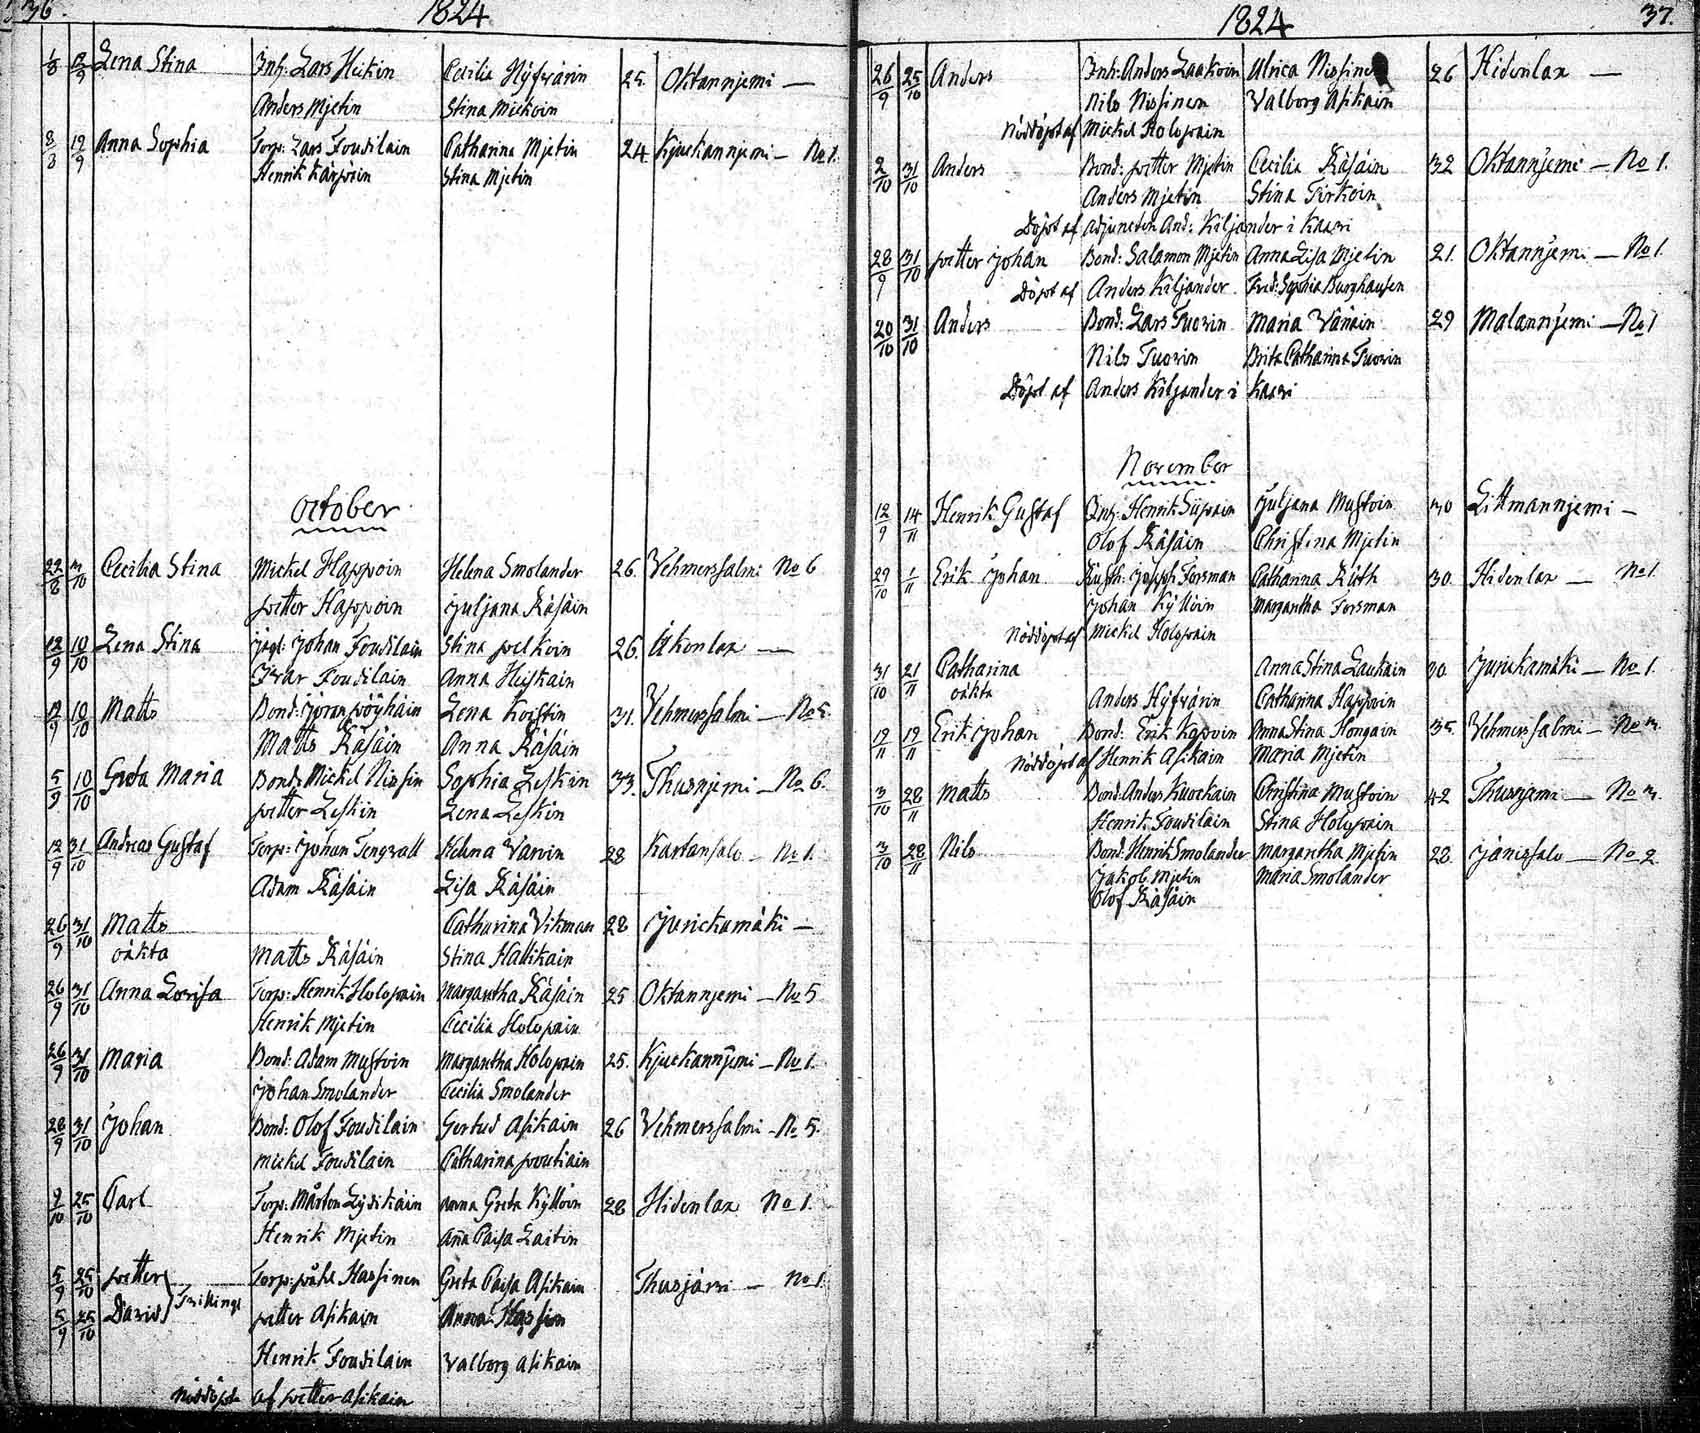 36
1824
1/8 12/9 Lena Stina Inh: Lars Heikin Cecilia Hyfvärin 25. Oktannjemi —
Anders Mjetin Stina Mickoin
8/8 19/9 Anna Sophia Torp: Lars Foudilain Catharina Mjetin 24 Kjuckannjemi — No 1.
Henrik Kärpäin Stina Mjetin
October
22/8 3/10 Cecilia Stina Mickel Happoin Helena Smolander 26. Vehmersalmi No 6
petter Happoin Juljana Räsäin
12/9 10/10 Lena Stina Johan Foudilain Stina pelkoin 26. Ukonlax —
Ivar Foudilain Anna Heiskain
10/10 Matts Bond: Jöran pöyhäin Lena Koistin 31. Vehmersalmi — No 5.
Matts Räsäin Anna Räsäin
5/9 10/10 Greta Maria Bond: Mickel Nissin Sophia Leskin 33. Thusnjemi — No 6.
petter Leskin Lena Leskin
12/9 31/10 Andreas Gustaf Torp: Johan Tengvall Helena Varvin 28 Kartansalo — No 1.
Adam Räsäin Lisa Räsäin
26/9 31/10 Matts Catharina Vikman 28 Jurickamäki —
oäkta Matts Räsäin Stina Hallikain
26/9 31/10 Anna Lovisa Torp: Henrik Holopain Margaretha Räsäin 25 Oktannjemi — No 5
Henrik Mjetin Cecilia Holopain
26/9 31/10 Maria Bond: Adam Mustoin Margaretha Holopain 25. Kjuckannjemi — No 1.
Johan Smolander Cecilia Smolander
28/9 31/10 Johan Bond: Olof Foudilain Gertud Asikain 26 Vehmersalmi — No 5.
Mickel Foudilain Catharina poutiain
9/10 25/10 Carl Torp: Mårten Lydikäin Anna Greta Kyllöin 28 Hidenlax No 1.
Henrik Mjetin Anna Caisa Laitin
5/9 25/10 petter Torp: påhl Hassinen Greta Caisa Asikain Thusjärvi — No 1
5/9 25/10 David Tvillingr petter Asikain Anna Hassin
Henrik Foudilain Valborg Asikain
Nöddöpte af petter Asikain
1824
37.
26/9 25/10 Anders Inh: Anders Laakoin Ulrica Nissinen 26 Hidenlax —
Nils Nissinen Valborg Asikain
Nöddöpt af Mickel Holopain
2/10 31/10 Anders Bond: petter Mjetin Cecilia Räsäin 32 Oktannjemi — No 1.
Anders Mjetin Stina Tirkoin
Döpt af Adjuncten And: Kiljander i Kaavi
28/9 31/10 petter Johan Bond: Salamon Mjetin Anna Lisa Mjetin 21. Oktannjemi — No 1.
Döpt af Anders Kiljander Fred: Sophia Burghausen
20/10 31/10 Anders Bond: Lars Tuovin Maria Vänäin 29 Malannjemi — No 1
Nils Tuovin Brita Catharina Tuovin
Döpt af Anders Kiljander i Kaavi
November
12/9 14/11 Henrik Gustaf Inh: Henrik Siipain Juljana Mustoin 30 Littmannjemi —
Olof Räsäin Christina Mjetin
29/10 1/11 Erik Johan Joseph Forsman Catharina Rüth 30. Hidenlax — No 1.
Johan Kyllöin Margaretha Forsman
Nöddöpt af Mickel Holopain
31/10 21/11 Catharina Anna Stina Laukain 30 Jurickamäki — No 1.
oäkta Anders Hyfvärin Catharina Happoin
19/11 19/11 Erik Johan Bond: Erik Kapoin Anna Stina Hongain 35. Vehmersalmi — No 3.
Nöddöpt af Henrik Asikain Maria Mjetin
3/10 28/11 Matts Bond: Anders Kuockain Christina Mustoin 42 Thusnjemi — No 3.
Henrik Foudilain Stina Holopain
3/10 28/11 Nils Bond: Henrik Smolander Margaretha Mjetin 28. Jänissalo — No 2.
Jakob Mjetin Maria Smolander
Olof Räsäin